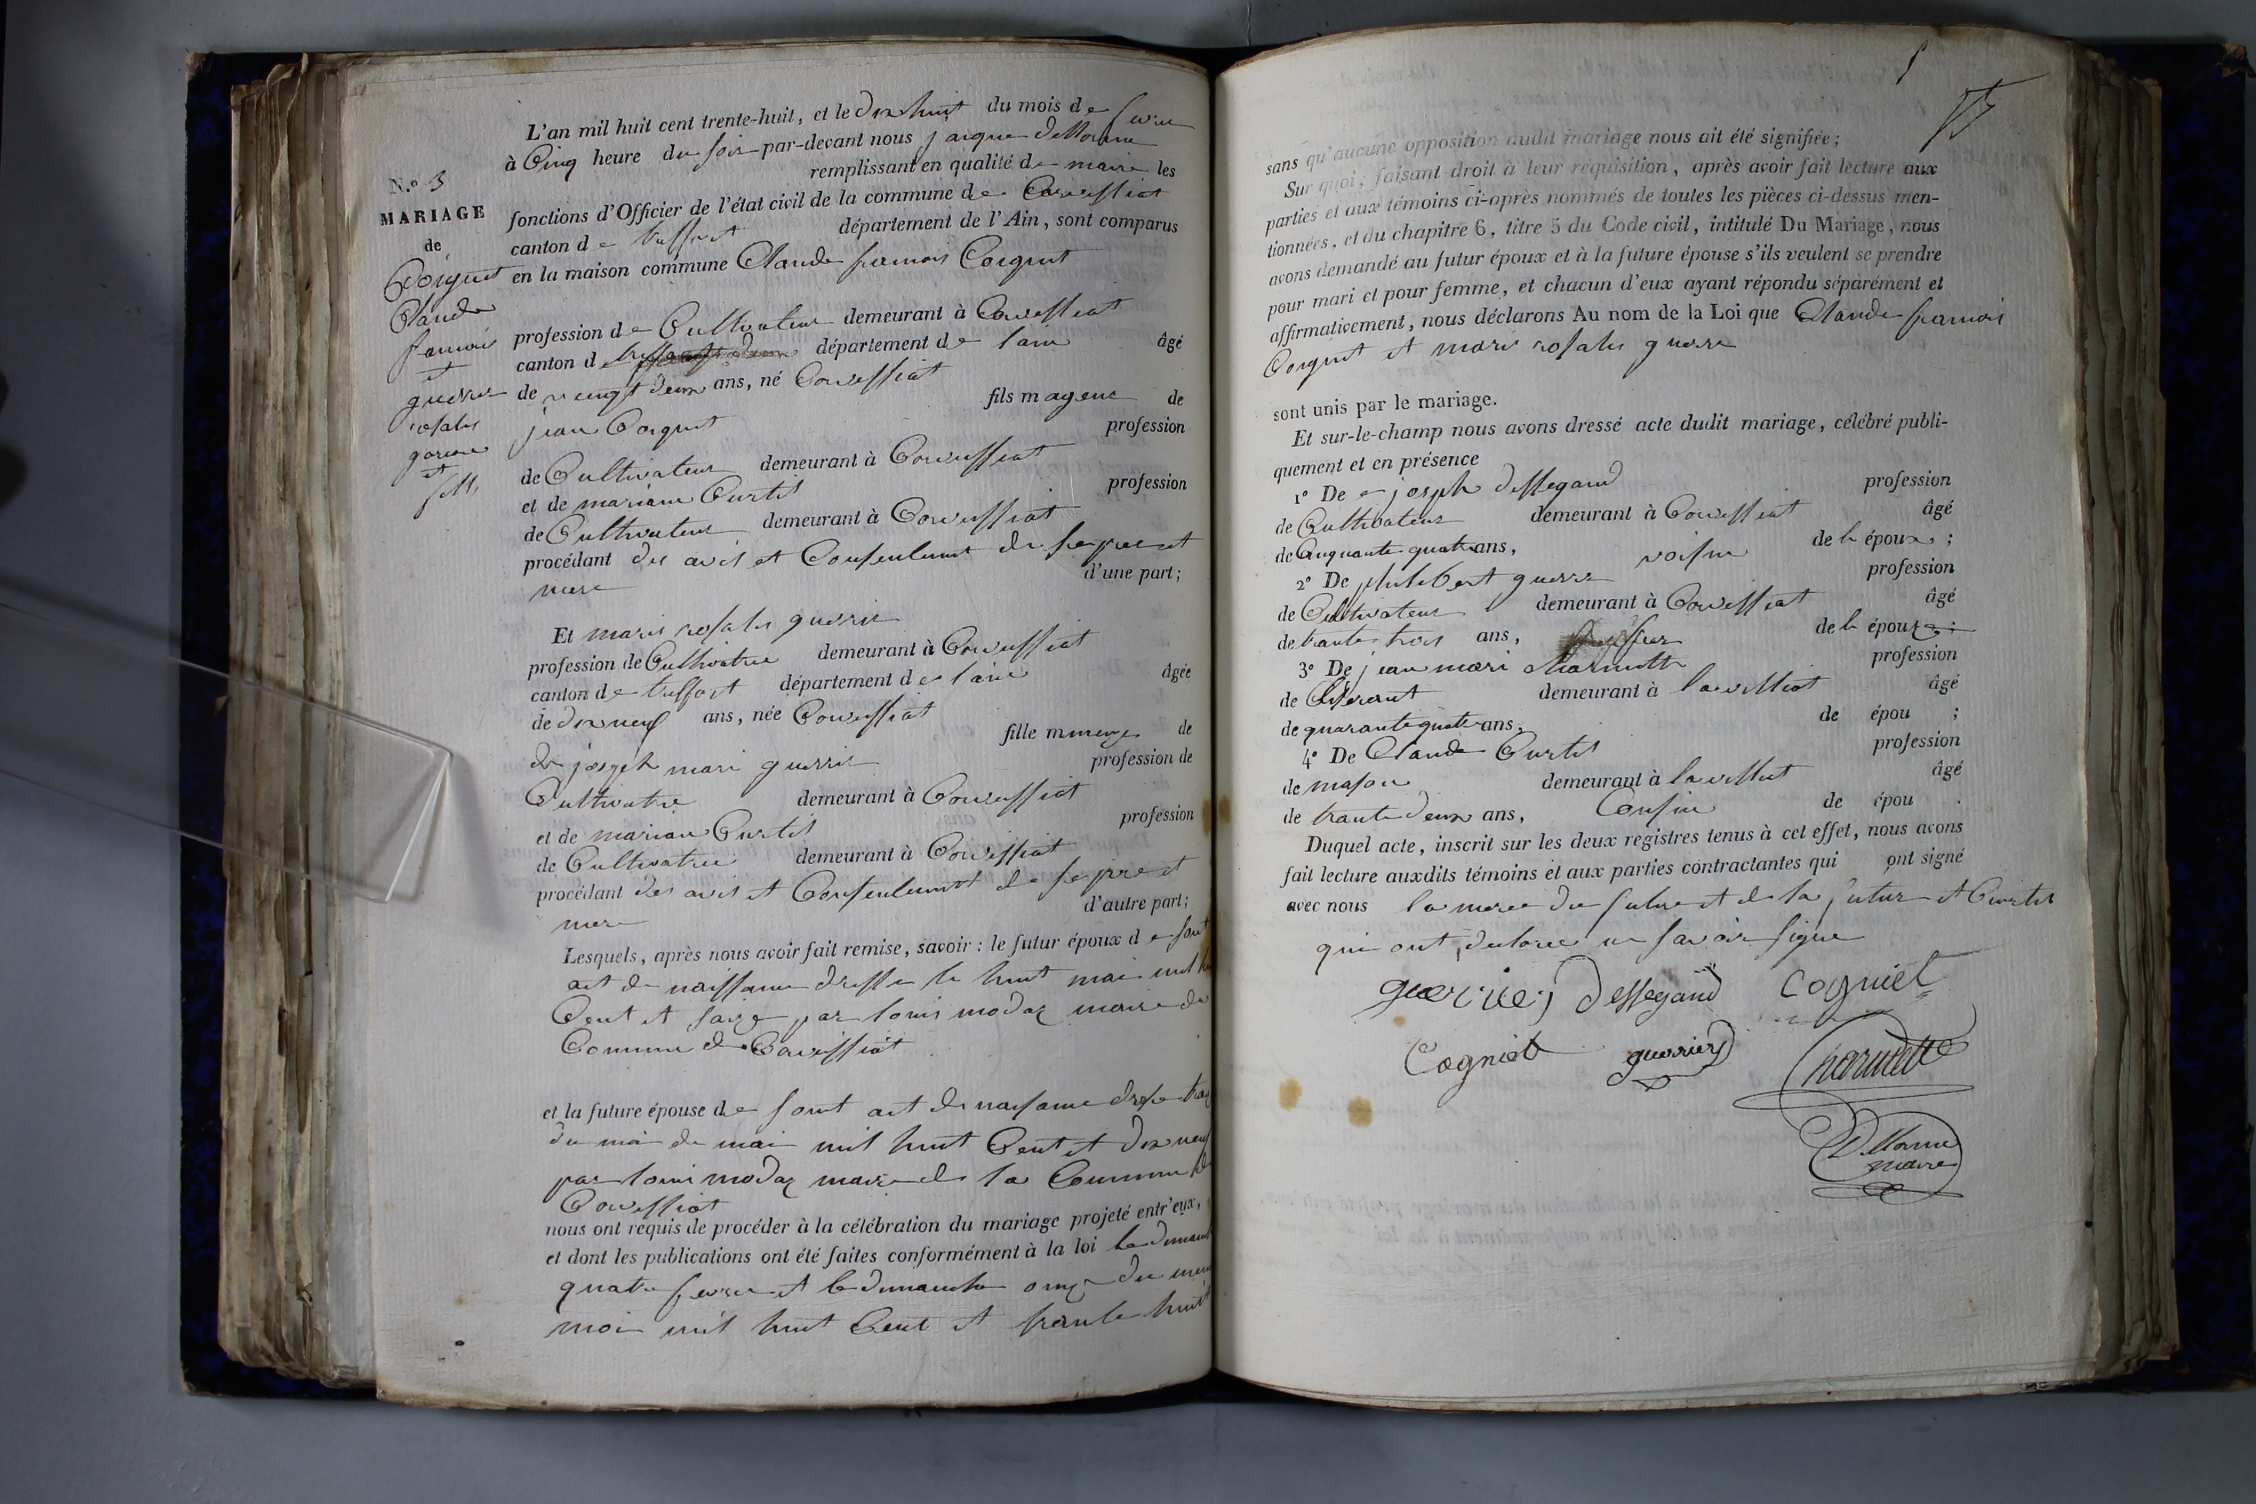 N.º 3
MARIAGE
de
Coignet
Claude
francois
et
guerrier
rosalie
garcon
et
fille
L'an mil huit cent trente-huit, et le dix huit du mois de fevrie
à Cinq heure du soir par-devant nous jacque dellorme
remplissant en qualité de maire les
fonctions d'Officier de l'état civil de la commune de Corvessiat
canton de treffort département de l'Ain, sont comparus
en la maison commune Claude francois Coignet
profession de Cultivateur demeurant à Corvessiat
canton de département de lain âgé
de vingt deux ans, né Corvessiat
fils mageur de
jean Coignet profession
de Cultivateur demeurant à Corvessiat
et de mariane Curtil profession
de Cultivateur demeurant à Corvessiat
procédant des avis et Consentement de se pere et
mere d'une part;
Et marie rosalie guerrier
profession de Cultivatrice demeurant à Corvessiat
canton de treffort département de lain âgée
de dix neuf ans, née Corvessiat
fille mineure de
de joseph mari guerrier profession de
Cultivatre demeurant à Corvessiat
et de mariane Curtil profession
de Cultivatrice demeurant à Corvessiat
procédant des avis et Consentement de se pere et
mere d'autre part;
Lesquels, après nous avoir fait remise, savoir : le futur époux de sont
act de naissance dresse le huit mai mil
Cent et saize par louis modaz maire de
Commune de Corvessiat
et la future épouse de sont act de naissance dresse
du moi de mai mil huit Cent et dix neuf
par louis modaz maire de la Commune de
Corvessiat
nous ont requis de procéder à la célébration du mariage projeté entr'eux,
et dont les publications ont été faites conformément à la loi le dimanch
quatre fevrie et le dimanche onze du meme
moi mil huit Cent et trante huit
sans qu'aucune opposition audit mariage nous ait été signifiée;
Sur quoi, faisant droit à leur réquisition, après avoir fait lecture aux
parties et aux témoins ci-après nommés de toutes les pièces ci-dessus men-
tionnées, et du chapitre 6, titre 5 du Code civil, intitulé Du Mariage, nous
avons demandé au futur époux et à la future épouse s'ils veulent se prendre
pour mari et pour femme, et chacun d'eux ayant répondu séparément et
affirmativement, nous déclarons Au nom de la Loi que Claude francois
Coignet et marie rosalie guerrie
sont unis par le mariage.
Et sur-le-champ nous avons dressé acte dudit mariage, célébré publi-
quement et en présence
1º De joseph dessegand profession
de Cultivateur demeurant à Corvessiat âgé
de Cinquante quatre ans, voisin de l époux ;
2º De philibert guerrie profession
de Cultivateur demeurant à Corvessiat âgé
de trante trois ans, de l épou
3º De jean mari Charnette profession
de demeurant à âgé
de quarante quatre ans, de épou ;
4º De Claude Curtil profession
de mason demeurant à âgé
de trante deux ans, Cousin de épou .
Duquel acte, inscrit sur les deux registres tenus à cet effet, nous avons
fait lecture auxdits témoins et aux parties contractantes qui ont signé
avec nous la mere du futur et de la futur et Curtil
qui ont declaree ne savoir signe
guerrier dessegand cogniet
Cogniet guerrier Charnette
Dellorme
maire